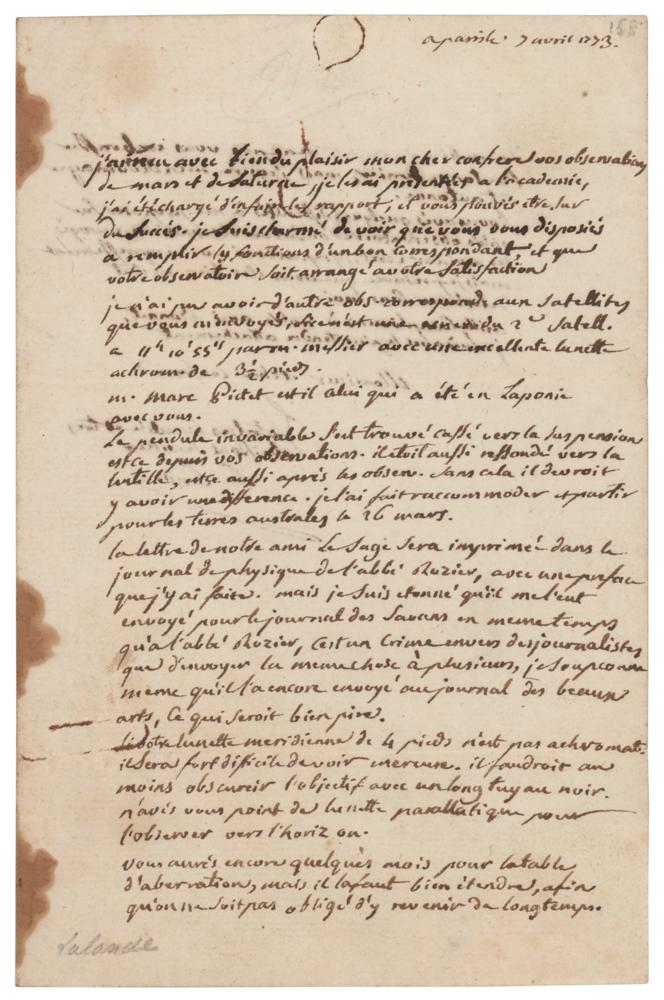 a paris le 7 avril 1773.
168
j'ai reçu avec bien du plaisir mon cher confrere vos observations
de mars et de Saturne, je les ai presentées a l'academie,
j'ai été chargé d'en faire le rapport, et vous pouvés etre sur
du succès. je suis charmé de voir que vous vous disposiés
a remplir les fonctions d'un bon correspondant, et que
votre observatoire soit arrangé a votre satisfaction
je n'ai pu avoir d'autre obs. correspond. aux satellites
que vous m'envoyés, si ce n'est une du 2d Satell.
a 11h 10' 55" par m. messier avec une excellente lunette
achrom. de 3½ pieds.
m. Marc Pictet est il celui qui a été en Laponie
avec vous.
Le pendule invariable s'est trouvé cassé vers la suspension
est ce depuis vos observations. il etoit aussi ressoudé vers la
lentille, est ce aussi après les observ. sans cela il devroit
y avoir une difference. je l'ai fait raccommoder et partir
pour les terres australes le 26 mars.
la lettre de notre ami Le Sage sera imprimée dans le
journal de physique de l'abbé Rozier, avec une preface
que j'y ai faite. mais je suis etonné qu'il me l'eut
envoyé pour le journal des Savans en meme temps
qu'a l'abbé Rozier, c'est un crime envers des journalistes
que d'envoyer la meme chose à plusieurs, je soupconne
meme qu'il l'a encore envoyé au journal des beaux
arts, ce qui seroit bien pire.
si votre lunette meridienne de 4 pieds n'est pas achromat.
il sera fort difficile de voir mercure. il faudroit au
moins obscurcir l'objectif avec un long tuyau noir.
n'avés vous point de lunette parallatique pour
l'observer vers l'horizon.
vous aurés encore quelques mois pour la table
d'aberration, mais il la faut bien étendre, afin
qu'on ne soit pas obligé d'y revenir de longtemps.
Lalande